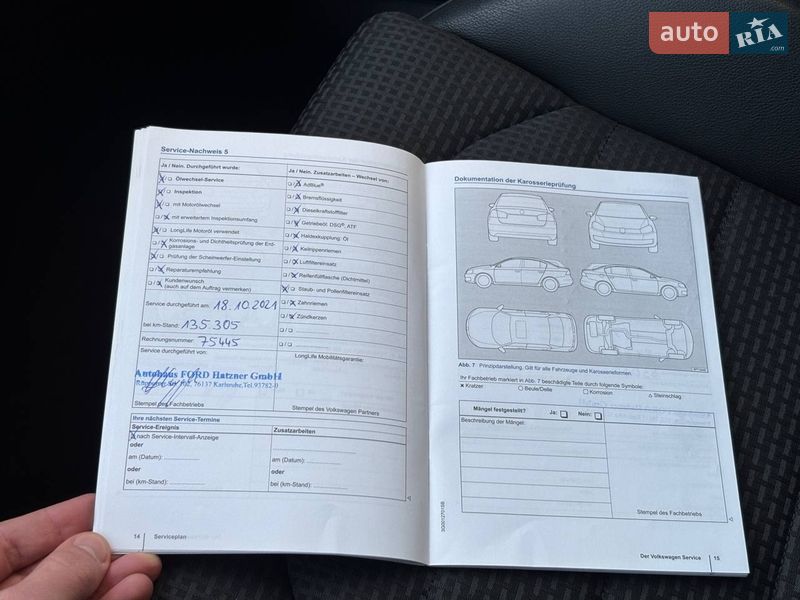 auto RIA .com
Service-Nachweis 5
Ja / Nein. Durchgeführt wurde:
Ölwechsel-Service
Inspektion
mit Motorölwechsel
mit erweitertem Inspektionsumfang
LongLife Motoröl verwendet
Korrosions- und Dichtheitsprüfung der Erd-
gasanlage
Prüfung der Scheinwerfer-Einstellung
Reparaturempfehlung
Kundenwunsch
(auch auf dem Auftrag vermerken)
Service durchgeführt am: 18.10.2021
bei km-Stand: 135.305
Rechnungsnummer: 75445
Service durchgeführt von:
Autohaus FORD Hatzner GmbH
76137 Karlsruhe, Tel. 93782-0
Stempel des Fachbetriebs
Ja / Nein. Zusatzarbeiten – Wechsel von:
AdBlue®
Bremsflüssigkeit
Dieselkraftstofffilter
Getriebeöl, DSG®, ATF
Haldexkupplung: Öl
Keilrippenriemen
Luftfiltereinsatz
Reifenfüllflasche (Dichtmittel)
Staub- und Pollenfiltereinsatz
Zahnriemen
Zündkerzen
LongLife Mobilitätsgarantie:
Stempel des Volkswagen Partners
Ihre nächsten Service-Termine
Service-Ereignis
Zusatzarbeiten
nach Service-Intervall-Anzeige
oder
am (Datum):
oder
bei (km-Stand):
am (Datum):
oder
bei (km-Stand):
14 Serviceplan
Dokumentation der Karosserieprüfung
Abb. 7 Prinzipdarstellung. Gilt für alle Fahrzeuge und Karosserieformen.
Ihr Fachbetrieb markiert in Abb. 7 beschädigte Teile durch folgende Symbole:
x Kratzer ○ Beule/Delle □ Korrosion △ Steinschlag
Mängel festgestellt? Ja: Nein:
Beschreibung der Mängel:
Stempel des Fachbetriebs
3G0012701SB
Der Volkswagen Service 15